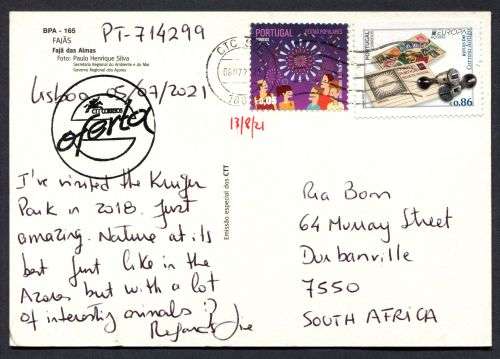 BPA - 165
FAJÃS
Fajã das Almas
Foto: Paulo Henrique Silva
Secretaria Regional do Ambiente e do Mar
Governo Regional dos Açores
PT-714299
Lisboa 05/07/2021
CTT CORREIOS
oferta
I've visited the Kruger
Park in 2018. Just
amazing. Nature at its
best just like in the
Azores but with a lot
of interesting animals :)
Regards
Emissão especial dos CTT
CTC
PORTUGAL
FESTAS POPULARES
13/8/21
PORTUGAL
EUROPA
Correio Antigo
€0.86
Ria Born
64 Murray Street
Durbanville
7550
SOUTH AFRICA